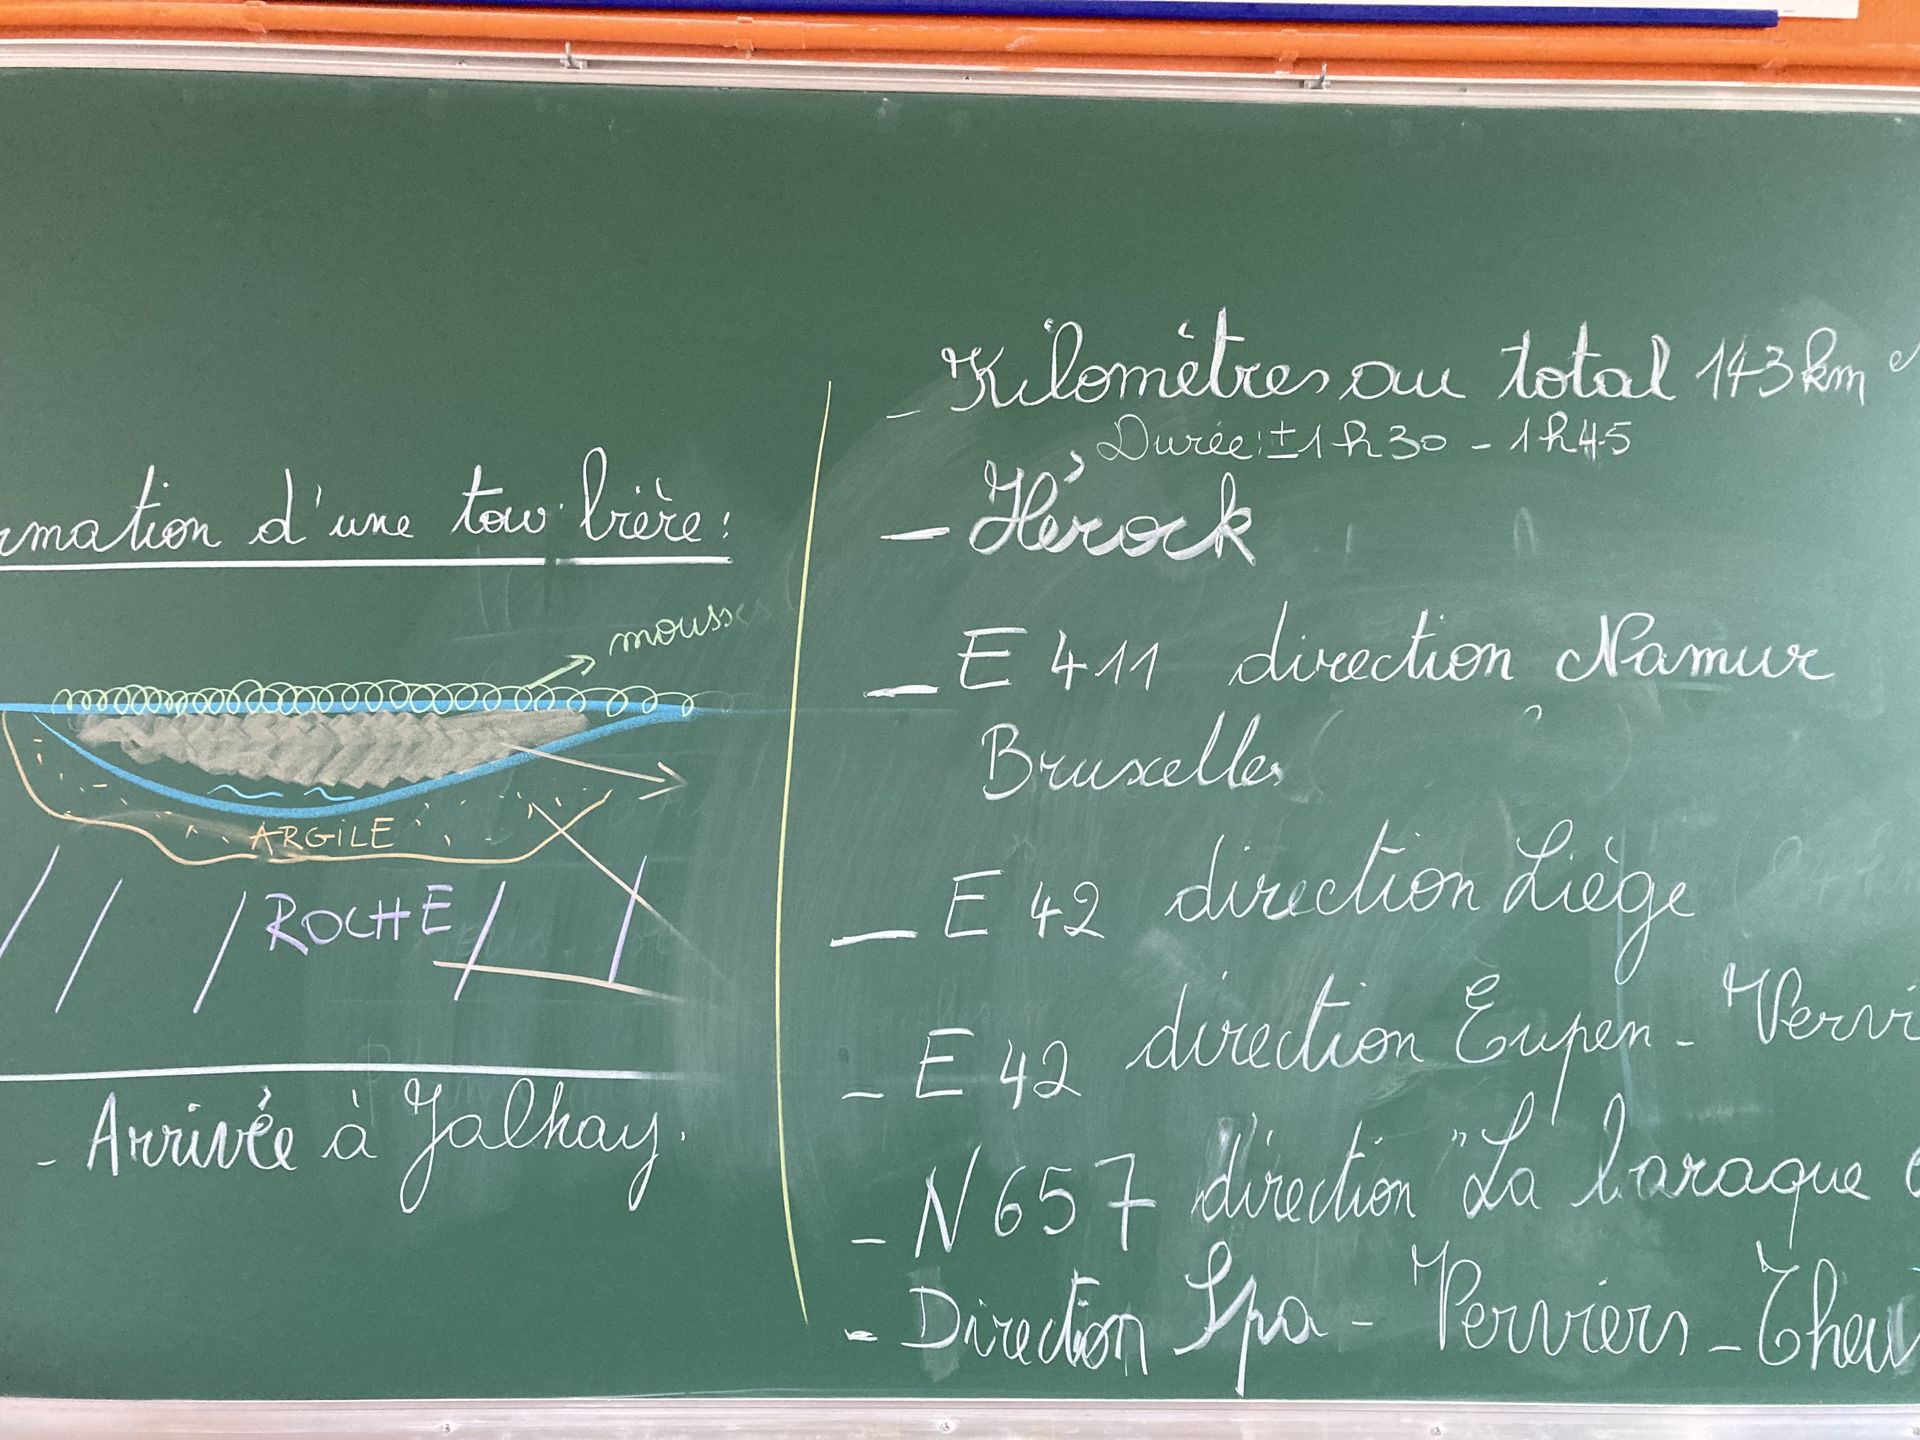 rmation d'une tourbière :
mousses
ARGILE
ROCHE
- Arrivée à Jalhay.
- Kilomètres au total 143 km
Durée : ± 1h30 - 1h45
- Hérock
- E 411 direction Namur
Bruxelles
- E 42 direction Liège
- E 42 direction Eupen - Vervi
- N 657 direction "La baraque
- Direction Spa - Verviers - Theu